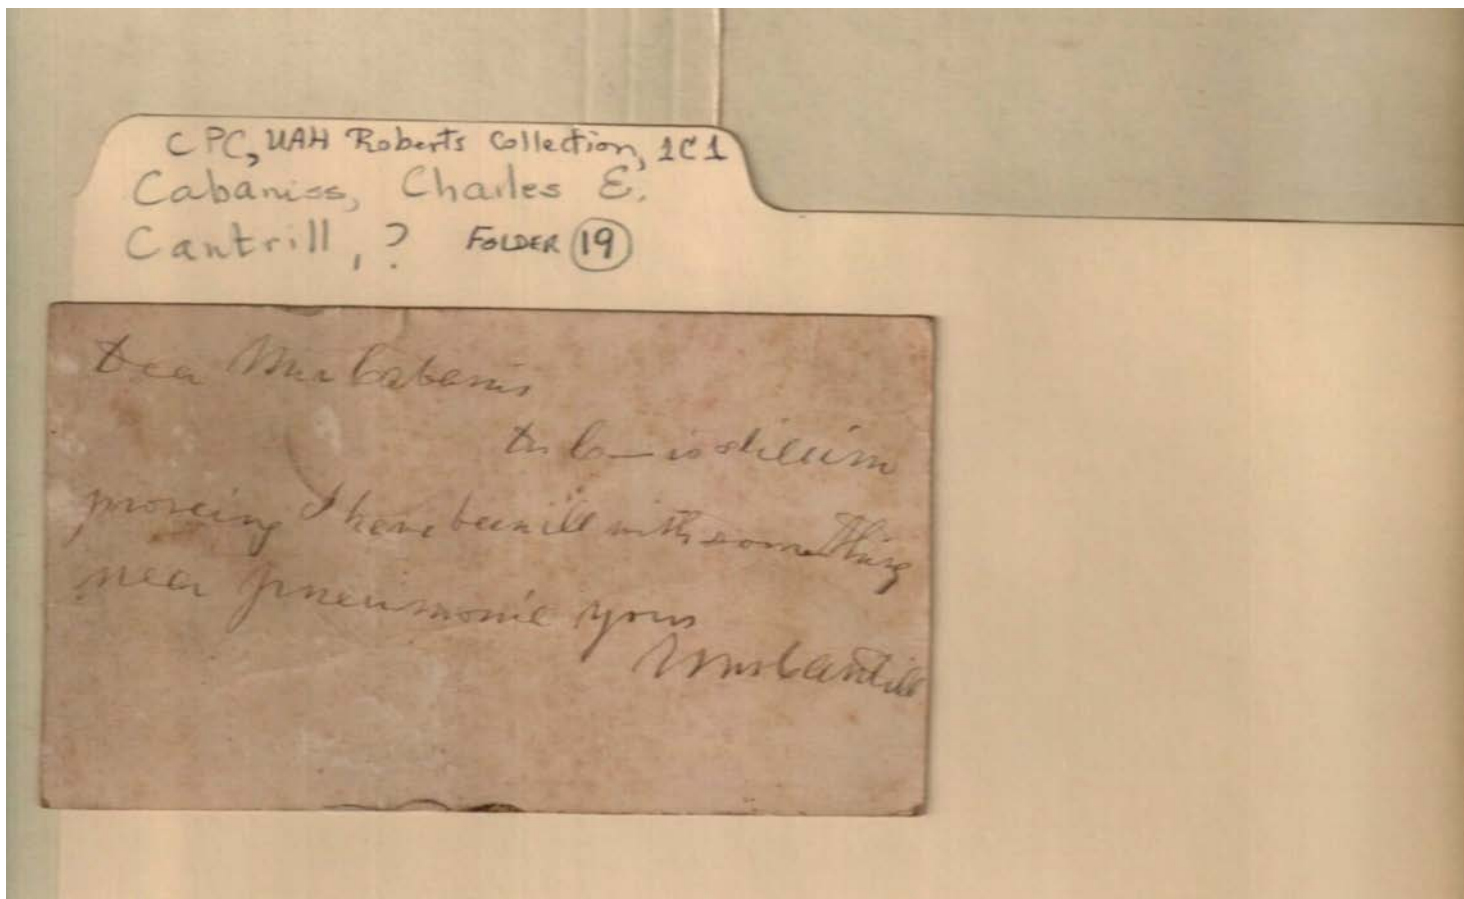 CPC, UAH Roberts Collection, 1C1
Cabaniss, Charles E.
Cantrill, ? FOLDER 19
Dear Cabanis
Dr C— is still im
proveing I have been ill with something
near pneumonie yours
Cantrill